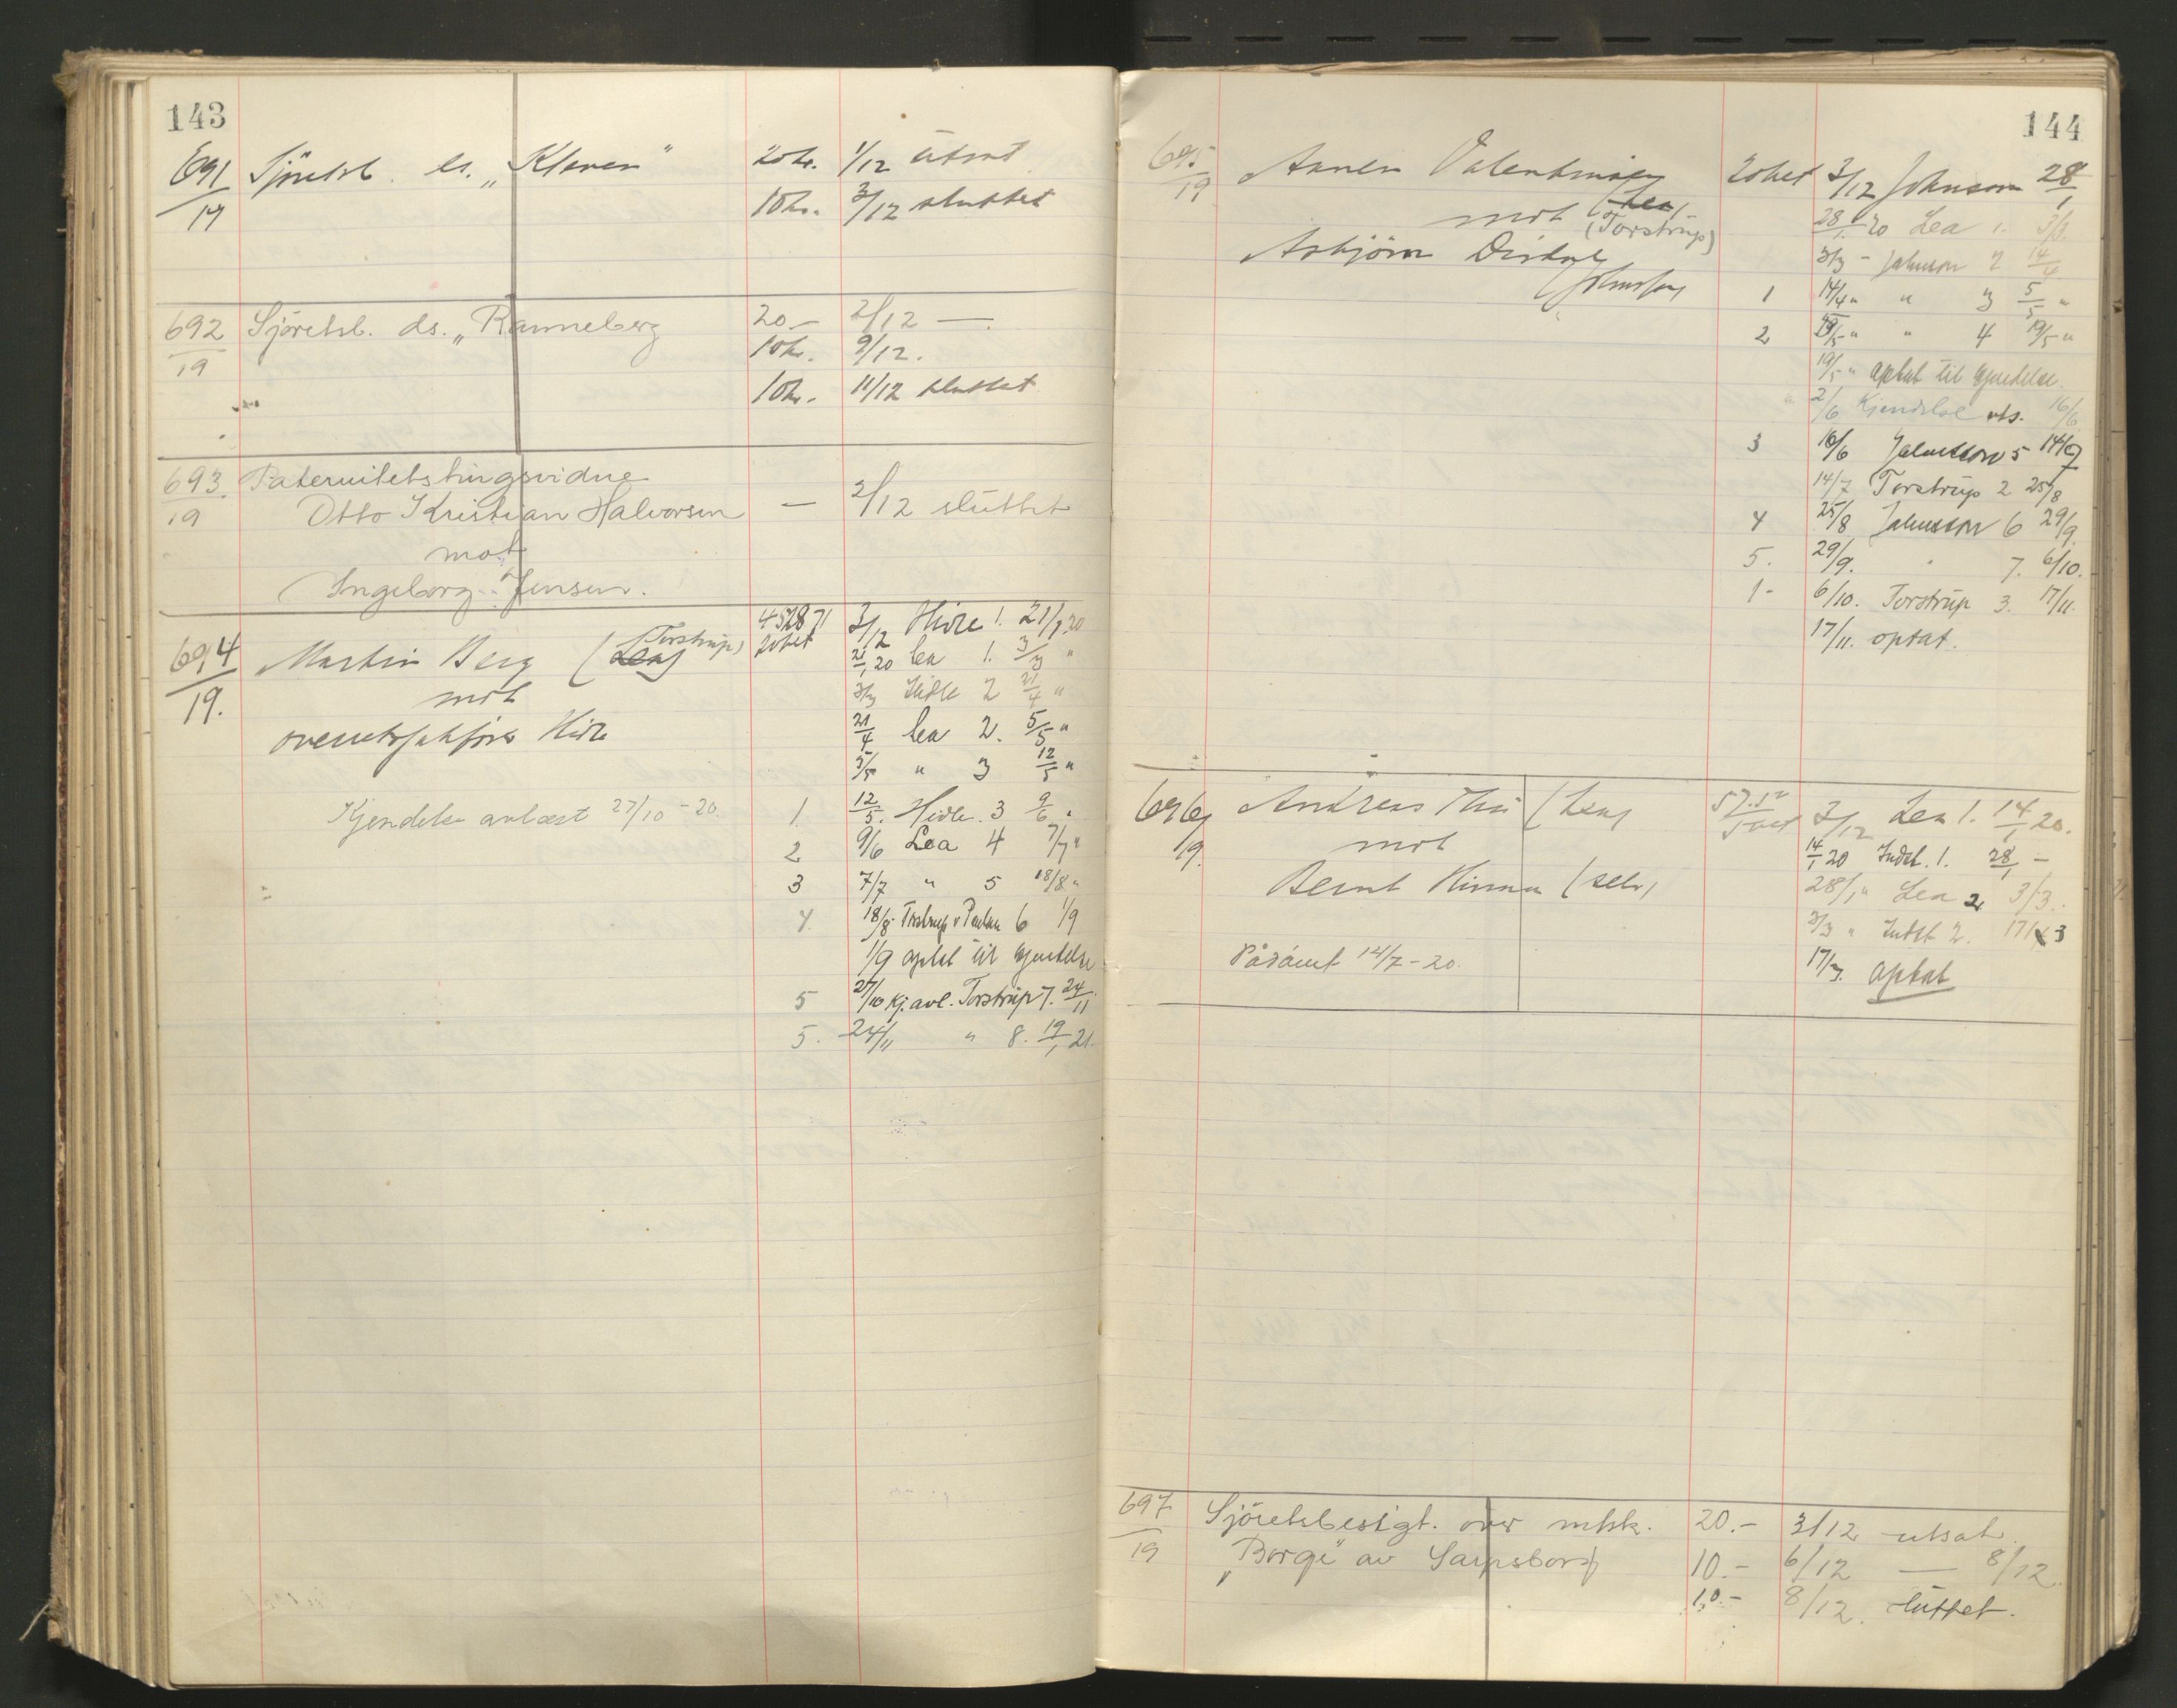 143
691/19 Sjöretsb. ds. „Klaven" 20 kr. 1/12 utsat
10 kr. 3/12 sluttet
692/19 Sjöretsb. ds. „Ranneberg 20 – 2/12 —
10 kr. 9/12.
10 kr. 11/12 sluttet
693/19 Paternitetstingsvidne
Otto Kristian Halvorsen — 2/12 sluttet
mot
Ingeborg Jensen.
694/19. Martin Berg (Lea) (Torstrup)
mot
overretssakfører Hidle
Kjendelse avlæst 27/10 – 20.
3/12 Hidle 1. 21/1 20
21/1 20 Lea 1. 3/3 "
3/3 Hidle 2 21/4 "
21/4 Lea 2. 5/5 "
5/5 " 3 12/5 "
1 12/5. Hidle. 3 9/6 "
2 9/6 Lea 4 7/7 "
3 7/7 " 5 18/8 "
4 18/8 Torstrup 6 1/9
1/9 optat til kjendelse
5 27/10 kj. avl. Torstrup 7. 24/11
5. 24/11 " 8. 19/1 21.
144
695/19 Valentinsen
mot (Lea) (Torstrup)
Asbjörn
Johnsson
3/12 Johnson 28/1
28/1 20 Lea 1. 3/3
3/3 – Johnson 2 14/4
1 14/4 " " 3 5/5 "
2 5/5 " " 4 19/5 "
19/5 " optat til kjendelse.
2/6 Kjendelse avs. 16/6
3 16/6 Johnsson 5 14/7
14/7 Torstrup 2 25/8
4 25/8 Johnsson 6 29/9
5. 29/9. " 7. 6/10.
1 - 6/10. Torstrup 3. 17/11.
17/11. optat.
696/19. Andreas (Lea)
mot
Bernt Hinna (selv)
Pådömt 14/7 – 20.
3/12 Lea 1. 14/1 20.
14/1 20 Indst. 1. 28/1 –
28/1 " Lea 2 3/3.
3/3 " Indst 2. 17/3
17/3. optat
697/19 Sjöretsbesigt. over mtsk. 20.- 3/12 utsat.
„Borge" av Sarpsborg 10.- 6/12 — 8/12.
10.- 8/12. sluttet.